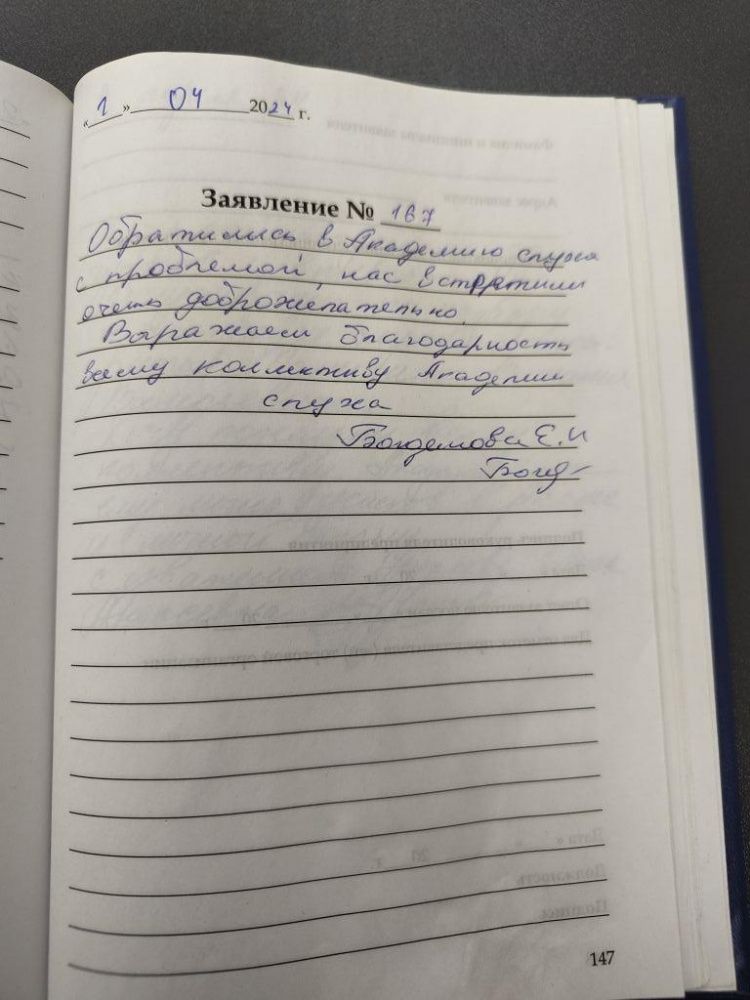 «1» 04 2024 г.
Заявление № 167
Обратились в Академию слуха
с проблемой, нас встретили
очень доброжелательно.
Выражаем благодарность
всему коллективу Академии
слуха
Е.И
147